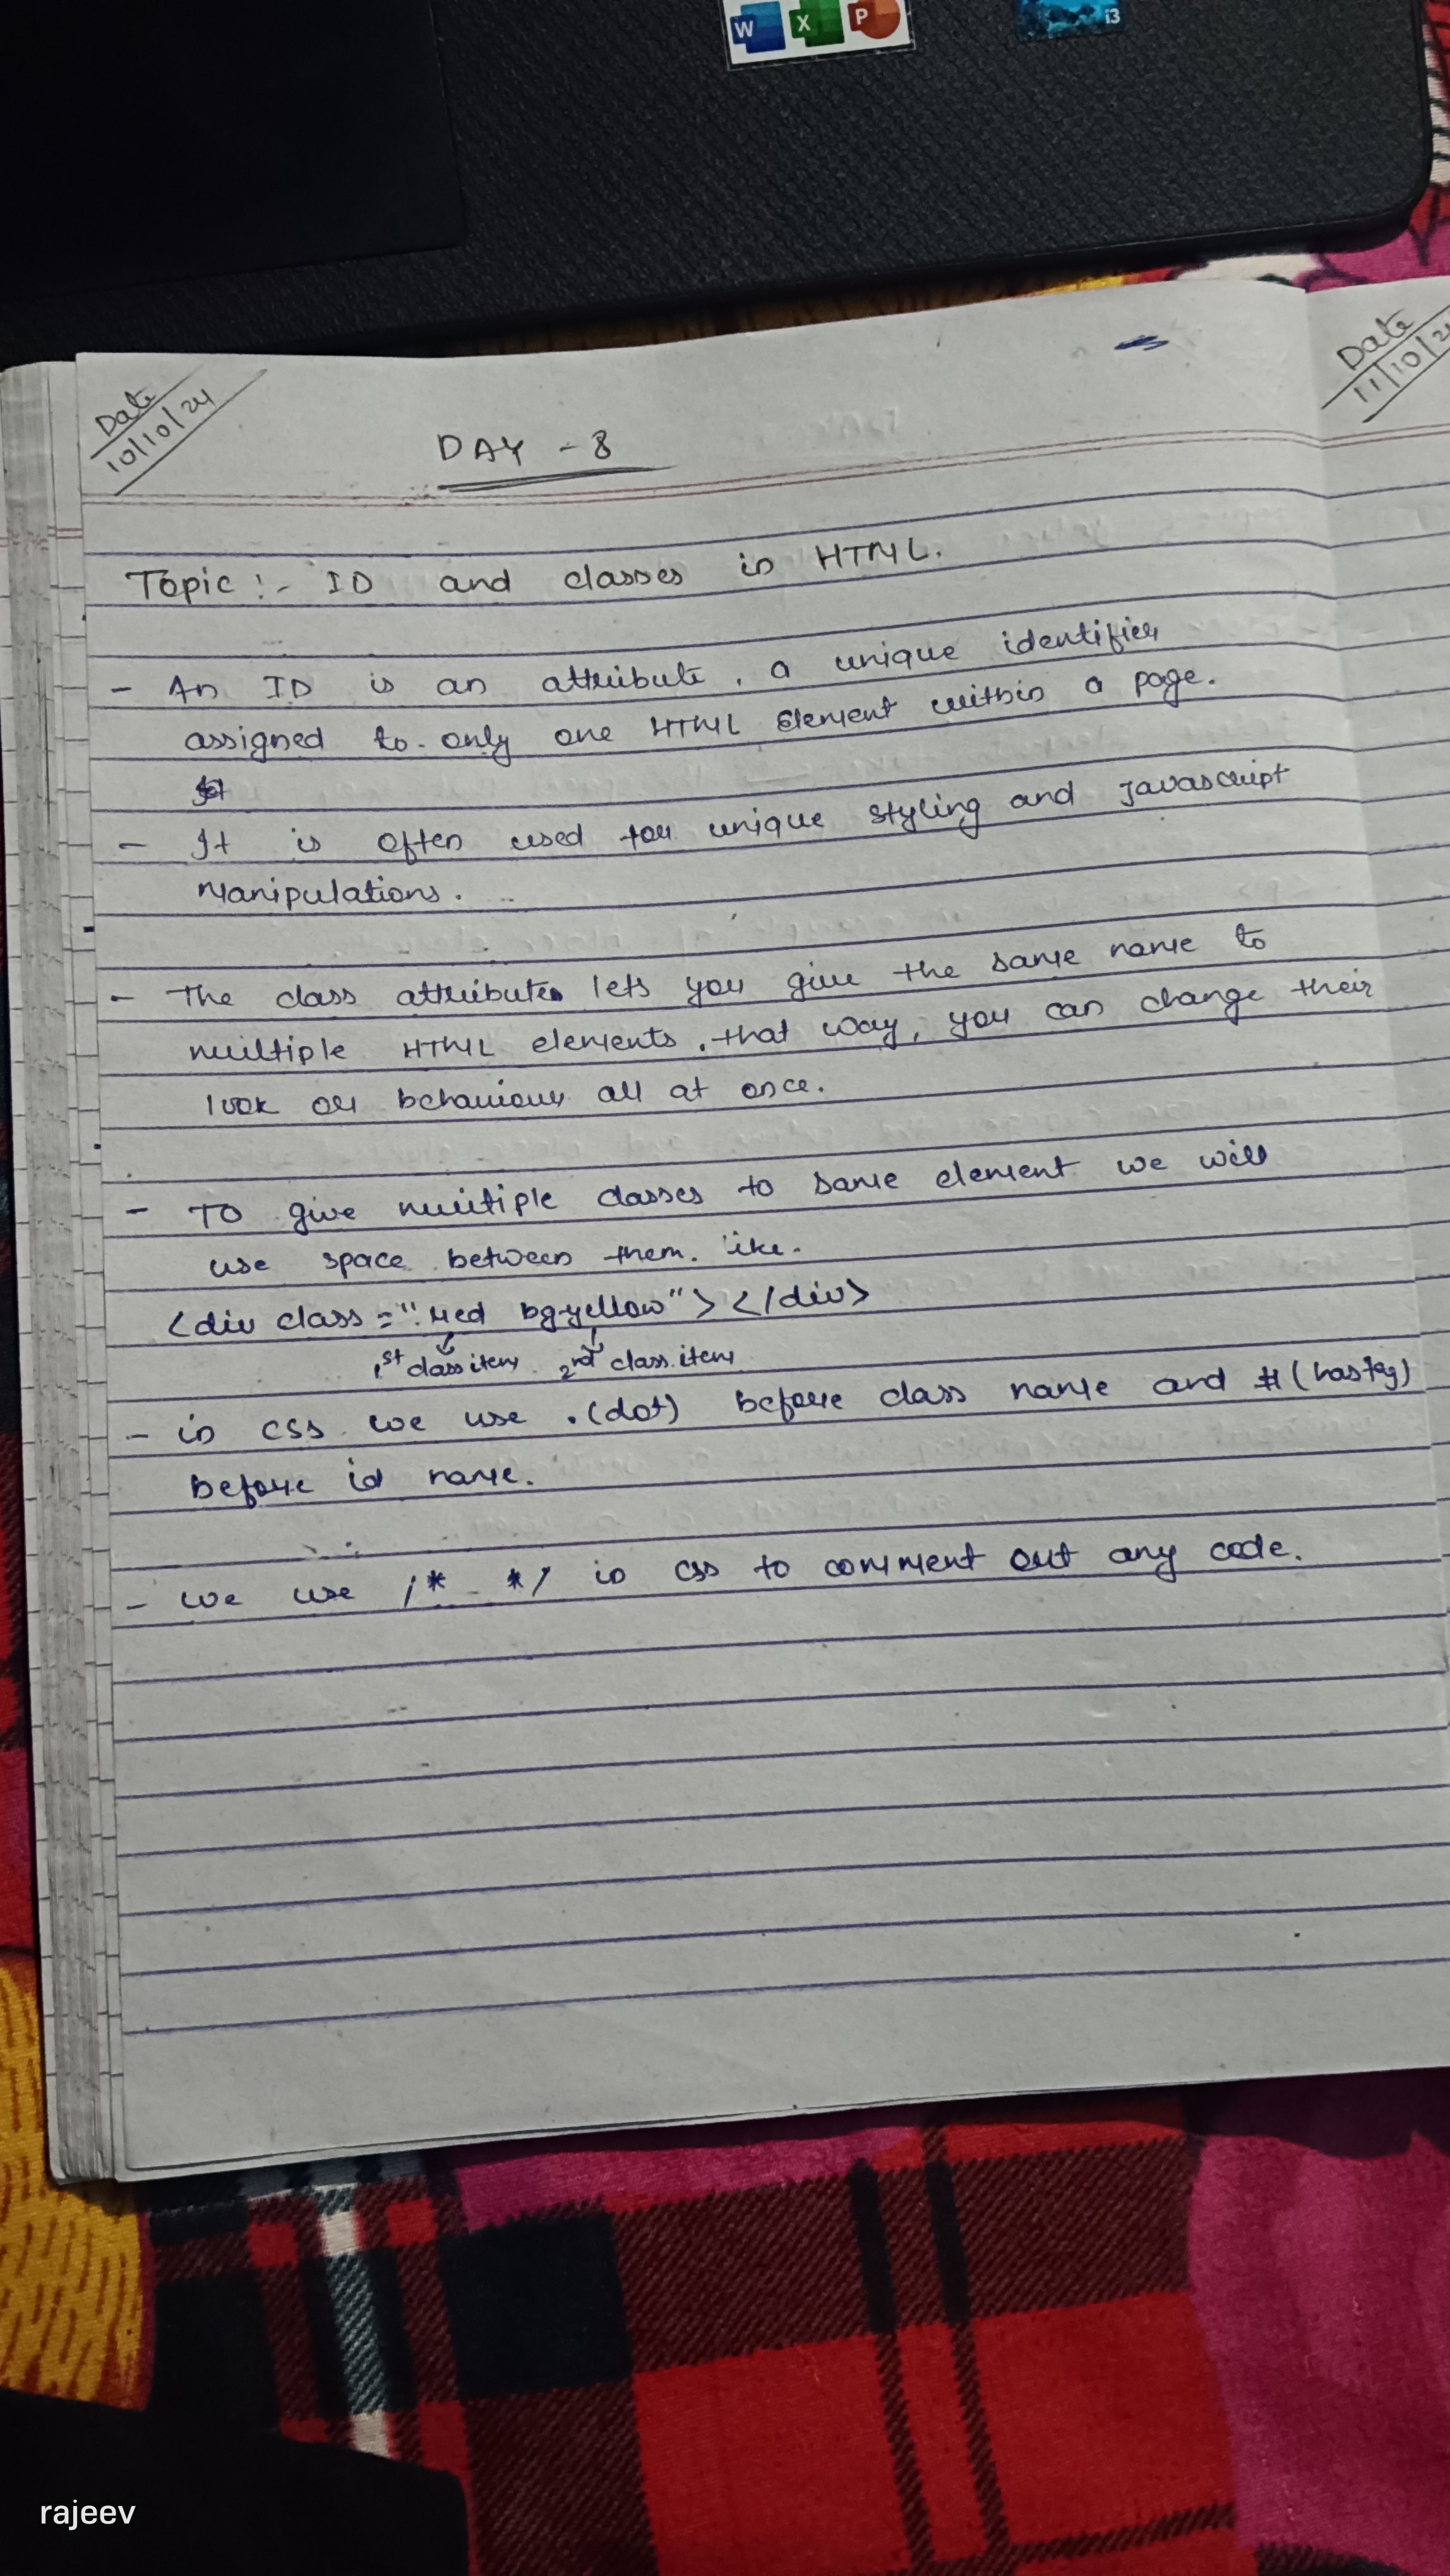 W X P
i3
Date
10/10/24
Date
11/10/2
DAY - 8
Topic :- ID and classes in HTML.
- An ID is an attribute, a unique identifier
assigned to only one HTML Element within a page.
- It is often used for unique styling and Javascript
Manipulations.
- The class attribute lets you give the same name to
multiple HTML elements, that way, you can change their
look or behaviour all at once.
- TO give multiple classes to same element we will
use space between them. like.
<div class="red bg-yellow"></div>
1st class item 2nd class item
- in css we use .(dot) before class name and #(hastag)
before id name.
- we use /* */ in css to comment out any code.
rajeev